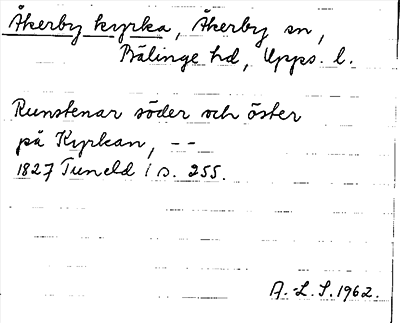 Åkerby kyrka, Åkerby sn,
Bälinge hd, Upps. l.
Runstenar söder och öster
på Kyrkan, --
1827 Tuneld I s. 255.
A.-L. S. 1962.